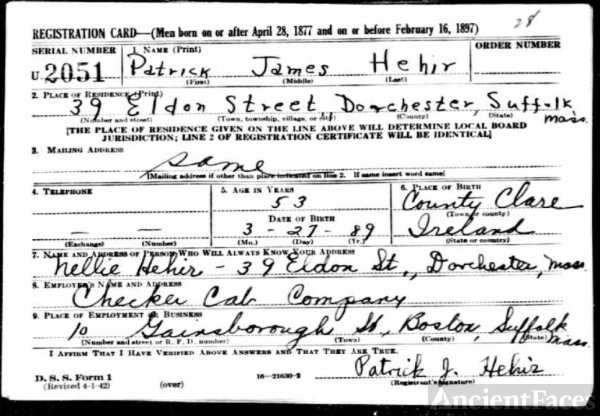 28
REGISTRATION CARD—(Men born on or after April 28, 1877 and on or before February 16, 1897)
SERIAL NUMBER 1. NAME (Print) ORDER NUMBER
U 2051 Patrick James Hehir
(First) (Middle) (Last)
2. PLACE OF RESIDENCE (Print)
39 Eldon Street, Dorchester, Suffolk Mass.
(Number and street) (Town, township, village, or city) (County) (State)
[THE PLACE OF RESIDENCE GIVEN ON THE LINE ABOVE WILL DETERMINE LOCAL BOARD
JURISDICTION; LINE 2 OF REGISTRATION CERTIFICATE WILL BE IDENTICAL]
3. MAILING ADDRESS
Same
[Mailing address if other than place indicated on line 2. If same insert word same]
4. TELEPHONE 5. AGE IN YEARS 6. PLACE OF BIRTH
53 County Clare
DATE OF BIRTH (Town or county)
— — 3 - 27 - 89 Ireland
(Exchange) (Number) (Mo.) (Day) (Yr.) (State or country)
7. NAME AND ADDRESS OF PERSON WHO WILL ALWAYS KNOW YOUR ADDRESS
Nellie Hehir - 39 Eldon St., Dorchester, Mass
8. EMPLOYER'S NAME AND ADDRESS
Checker Cab Company
9. PLACE OF EMPLOYMENT OR BUSINESS
10 Gainsborough St, Boston, Suffolk Mass.
(Number and street or R. F. D. number) (Town) (County) (State)
I AFFIRM THAT I HAVE VERIFIED ABOVE ANSWERS AND THAT THEY ARE TRUE.
Patrick J. Hehir
D. S. S. Form 1 16—21630-2 (Registrant's signature)
(Revised 4-1-42) (over)
AncientFaces